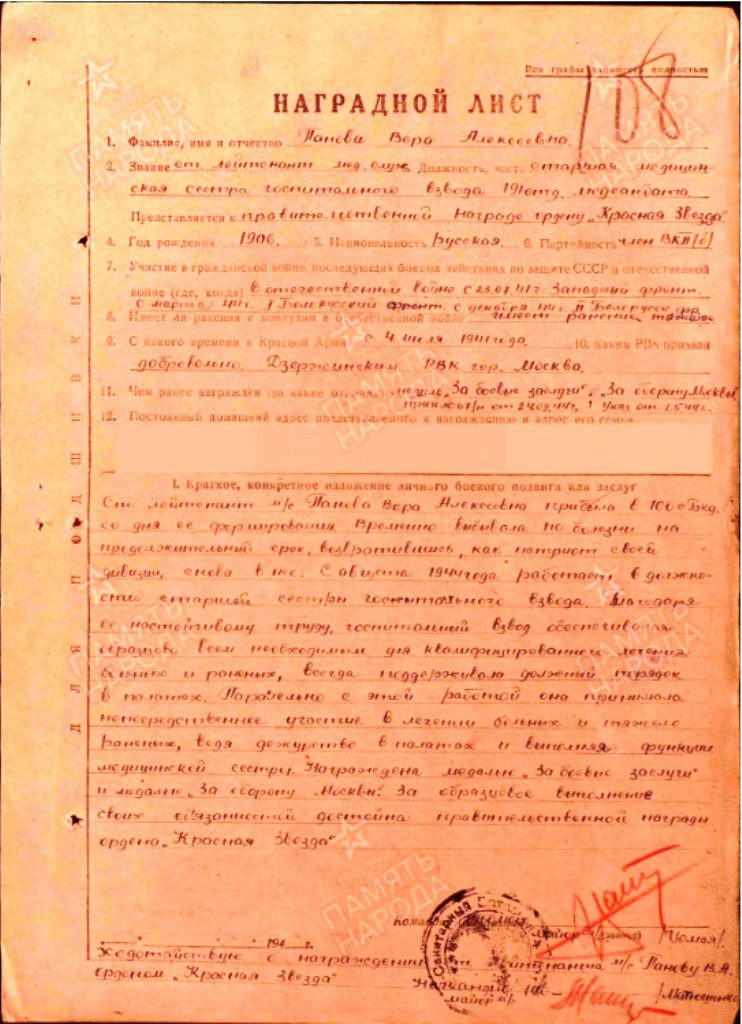 108
Все графы заполнять полностью
НАГРАДНОЙ ЛИСТ
1. Фамилия, имя и отчество Панова Вера Алексеевна.
2. Звание ст. лейтенант мед. служ. Должность, часть старшая медицин-
ская сестра госпитального взвода 191 отд. медсанбата
Представляется к правительственной награде ордену "Красная Звезда"
4. Год рождения 1906. 5. Национальность русская. 6. Партийность член ВКП(б)
7. Участие в гражданской войне, последующих боевых действиях по защите СССР и отечественной
войне (где, когда) в отечественной войне с 23.07.41г. Западный фронт.
С марта 44г. I Белорусский фронт, с декабря 44г. II Белорусск.
8. Имеет ли ранения и контузии в отечественной войне имеет ранение
9. С какого времени в Красной Армии с 4 июля 1941 года 10. Каким РВК призван
добровольно. Дзержинским РВК гор. Москва.
11. Чем ранее награжден (за какие отличия) медаль "За боевые заслуги", "За оборону Москвы"
от 24.09.44г, Указ от 1.5.44г.
12. Постоянный домашний адрес представляемого к награждению и адрес его семьи
I. Краткое, конкретное изложение личного боевого подвига или заслуг
Ст. лейтенант м/с Панова Вера Алексеевна прибыла в
со дня ее формирования. Временно выбывала по болезни на
продолжительный срок, возвратившись, как патриот своей
дивизии, снова в нее. С августа 1944 года работает в должно-
сти старшей сестры госпитального взвода. Благодаря
ее настойчивому труду, госпитальный взвод обеспечивался
образцово всем необходимым для квалифицированного лечения
больных и раненых, всегда поддерживала должный порядок
в палатах. Паралельно с этой работой она принимала
непосредственное участие в лечении больных и тяжело
раненых, ведя дежурство в палатах и выполняя функции
медицинской сестры. Награждена медалью "За боевые заслуги"
и медалью "За оборону Москвы". За образцовое выполнение
своих обязанностей достойна правительственной награды
ордена "Красная Звезда"
ДЛЯ ПОДШИВКИ
майор (звание)
194 г.
Ходотайствую о награждении ст. лейтенанта м/с Панову В.А.
орденом "Красная Звезда"
майор м/с
Санитарный
ПАМЯТЬ НАРОДА